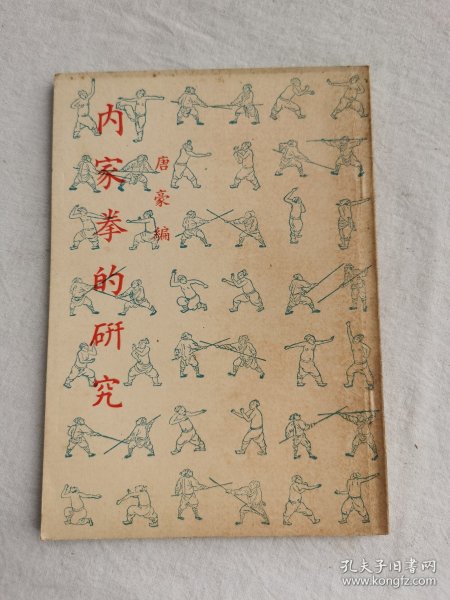 内家拳的研究
唐豪編
孔夫子旧书网
www.kongfz.com